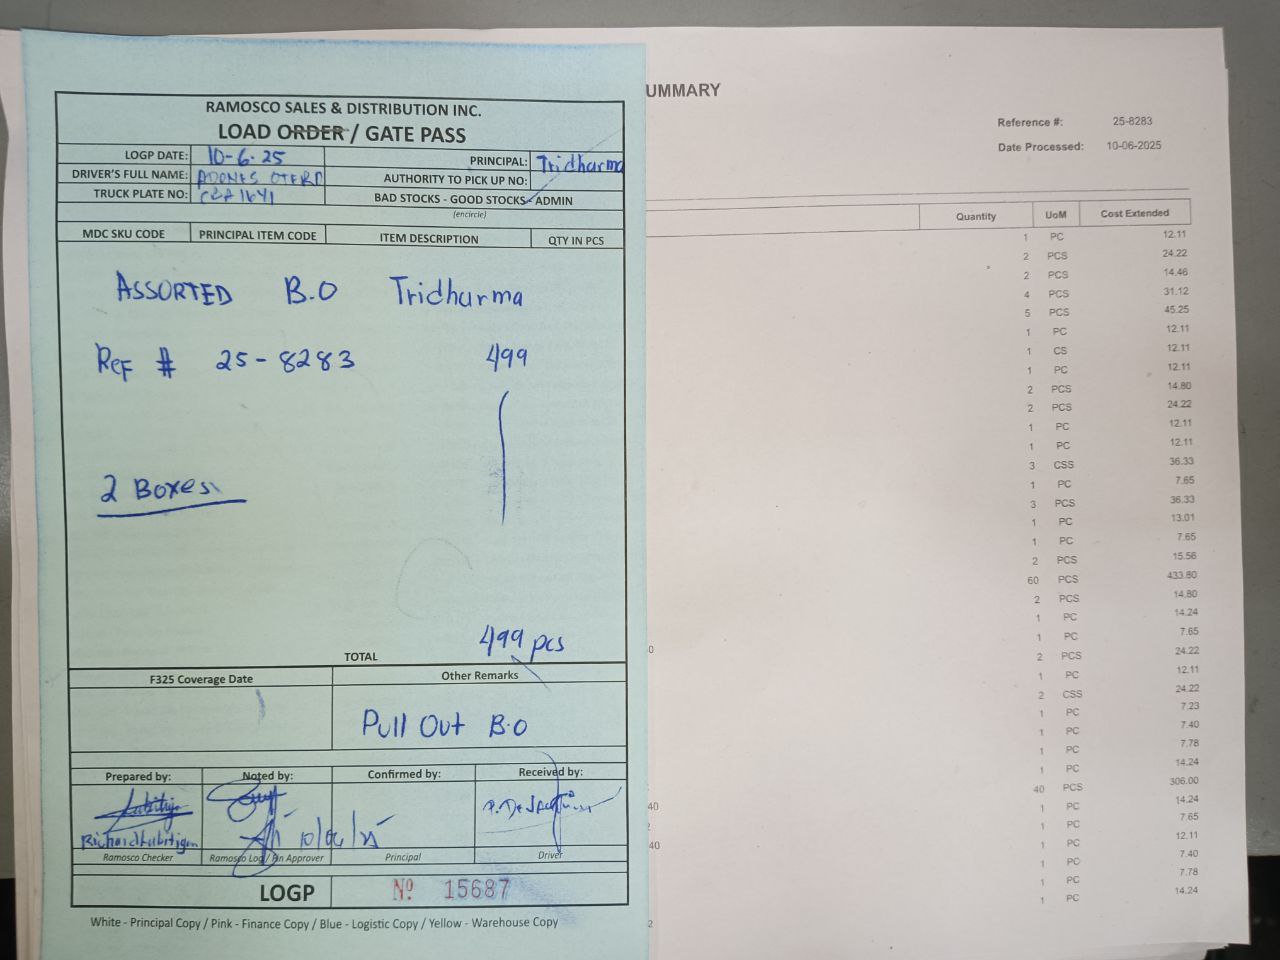 RAMOSCO SALES & DISTRIBUTION INC.
LOAD ORDER / GATE PASS
LOGP DATE: 10-6-25
PRINCIPAL: Tridharma
DRIVER'S FULL NAME: ADONES
AUTHORITY TO PICK UP NO:
TRUCK PLATE NO:
BAD STOCKS - GOOD STOCKS - ADMIN
(encircle)
MDC SKU CODE PRINCIPAL ITEM CODE ITEM DESCRIPTION QTY IN PCS
ASSORTED B.O Tridharma
Ref # 25-8283 499
2 Boxes
TOTAL 499 pcs
F325 Coverage Date Other Remarks
Pull Out B.O
Prepared by: Noted by: Confirmed by: Received by:
Richard Labitigan
10/06/25
Ramosco Checker Ramosco Log / Bin Approver Principal Driver
LOGP Nº 15687
White - Principal Copy / Pink - Finance Copy / Blue - Logistic Copy / Yellow - Warehouse Copy
UMMARY
Reference #: 25-8283
Date Processed: 10-06-2025
Quantity UoM Cost Extended
1 PC 12.11
2 PCS 24.22
2 PCS 14.46
4 PCS 31.12
5 PCS 45.25
1 PC 12.11
1 CS 12.11
1 PC 12.11
2 PCS 14.80
2 PCS 24.22
1 PC 12.11
1 PC 12.11
3 CSS 36.33
1 PC 7.65
3 PCS 36.33
1 PC 13.01
1 PC 7.65
2 PCS 15.56
60 PCS 433.80
2 PCS 14.80
1 PC 14.24
1 PC 7.65
2 PCS 24.22
1 PC 12.11
2 CSS 24.22
1 PC 7.23
1 PC 7.40
1 PC 7.78
1 PC 14.24
40 PCS 306.00
1 PC 14.24
1 PC 7.65
1 PC 12.11
1 PC 7.40
1 PC 7.78
1 PC 14.24